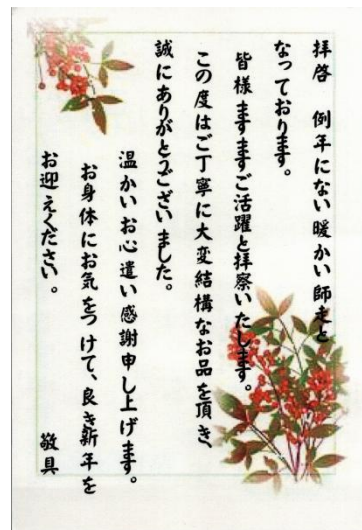 拝啓　例年にない暖かい師走と
なっております。
皆様ますますご活躍と拝察いたします。
この度はご丁寧に大変結構なお品を頂き、
誠にありがとうございました。
温かいお心遣い感謝申し上げます。
お身体にお気をつけて、良き新年を
お迎えください。
敬具